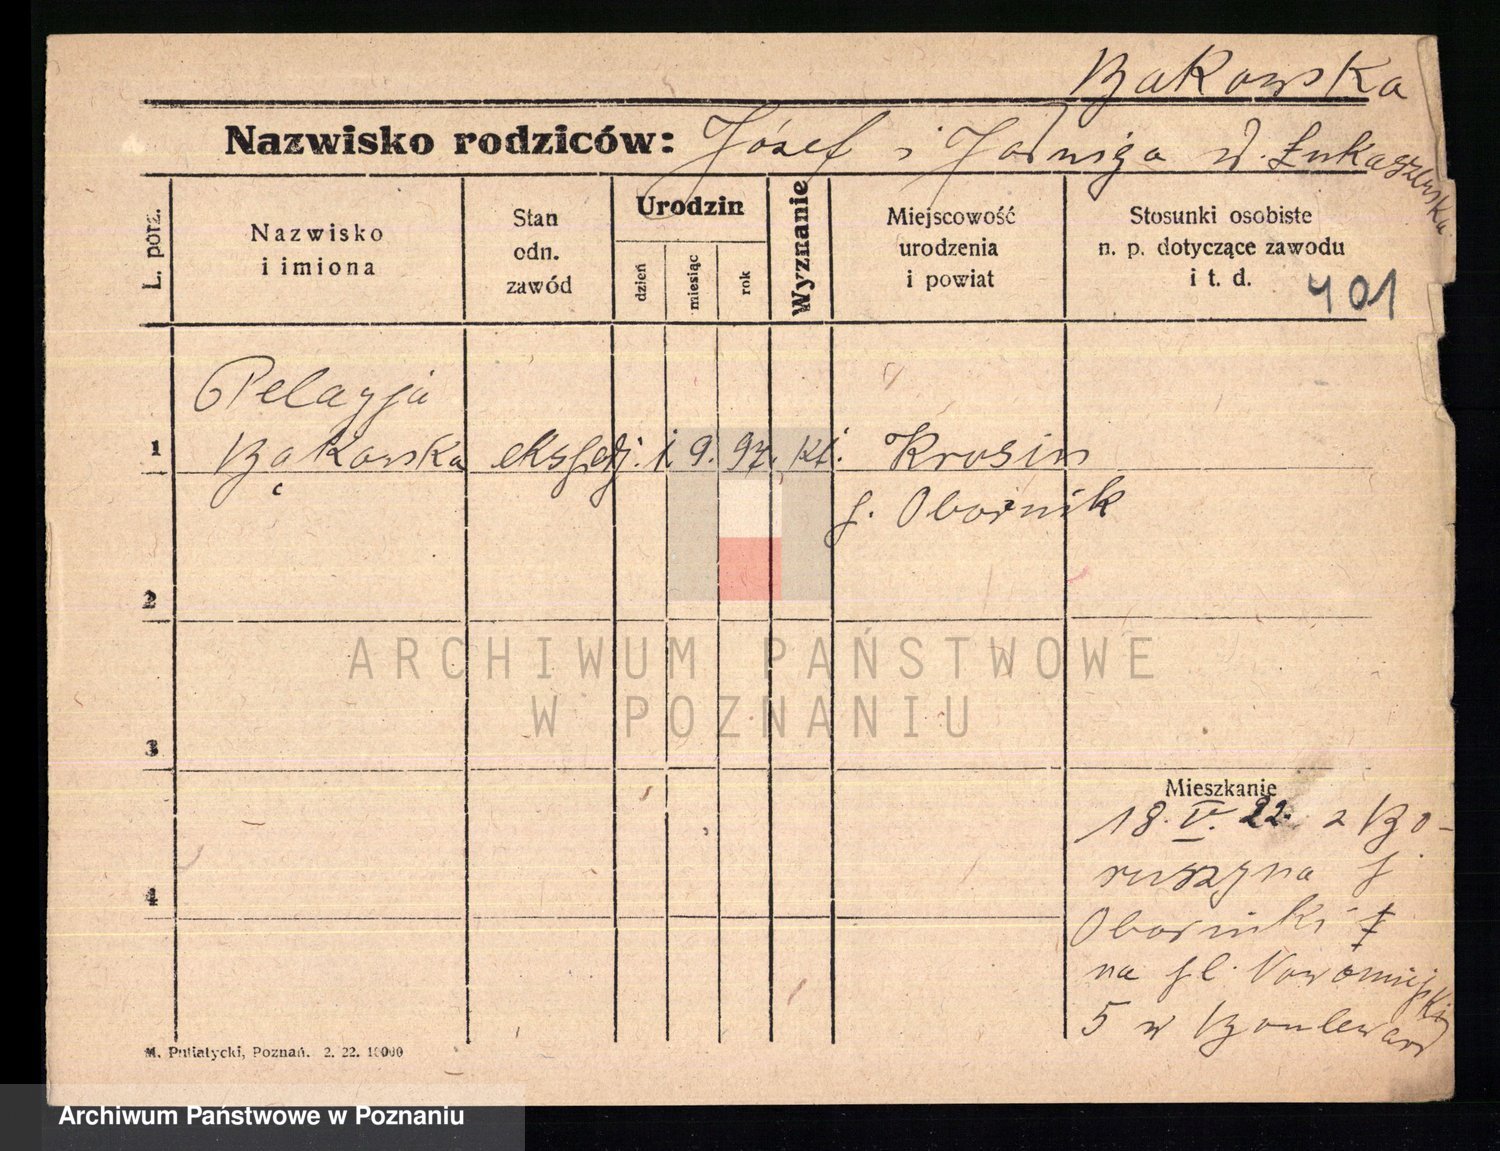 Bąkowska
Nazwisko rodziców: Józef i Jadwiga d. Łukaszewska
L. porz.
Nazwisko
i imiona
Stan
odn.
zawód
Urodzin
dzień
miesiąc
rok
Wyznanie
Miejscowość
urodzenia
i powiat
Stosunki osobiste
n. p. dotyczące zawodu
i t. d.
401
Pelagja
1 Bąkowska ekspedj. 1. 9. 97. kt. Krosin
p. Obornik
2
ARCHIWUM PAŃSTWOWE
W POZNANIU
3
Mieszkanie
18. IV. 22. z Bo-
ruszyna p.
4
Oborniki
na pl. Nowomiejski
5 w Boulevard
M. Putiatycki, Poznań. 2. 22. 10000
Archiwum Państwowe w Poznaniu